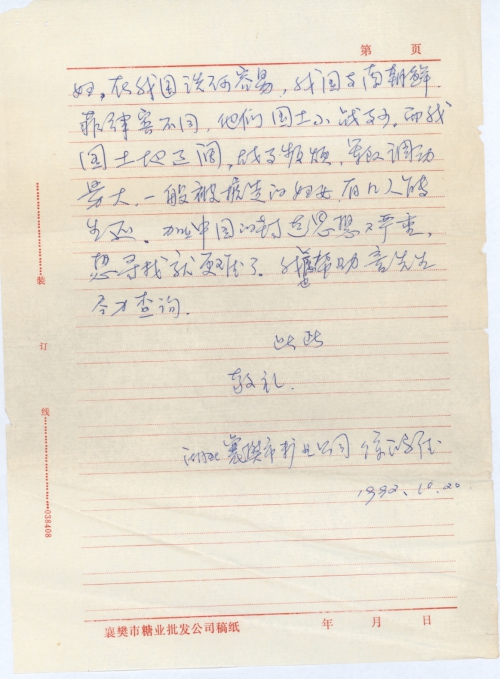 第 页
妇。在我国谈何容易，我国与南朝鲜
菲律宾不同，他们国土小战事少。而我
国土地辽阔，战事频烦，军队调动
最大，一般被掳走的妇女，有几人能
生还。加上中国的封建思想又严重，
想寻找就更难了。我也帮助童先生
尽力查询。
此致
敬礼
湖北襄樊市 公司 徐
1992.10.20.
装
订
线
038408
襄樊市糖业批发公司稿纸 年 月 日